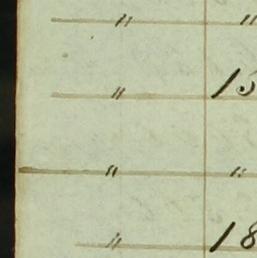 " "
" 15
" "
" 18